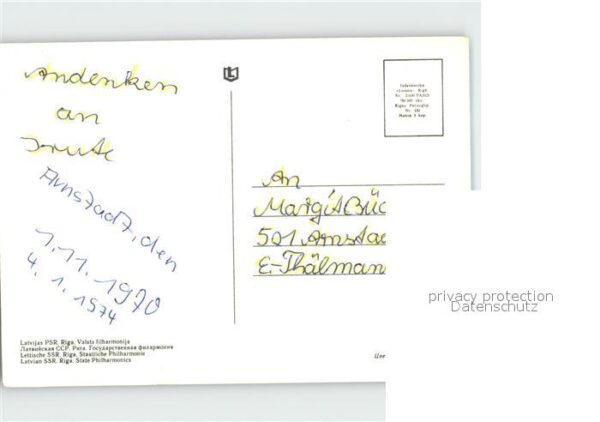 Andenken
an
Arnstadt, den
1.11.1970
4. 1. 1974
An
Margit Büc
501 Arnstad
E.-Thälman
privacy protection
Datenschutz
Latvijas PSR. Rīga. Valsts filharmonija
Латвийская ССР. Рига. Государственная филармония
Lettische SSR. Riga. Staatliche Philharmonie
Latvian SSR. Riga. State Philharmonics